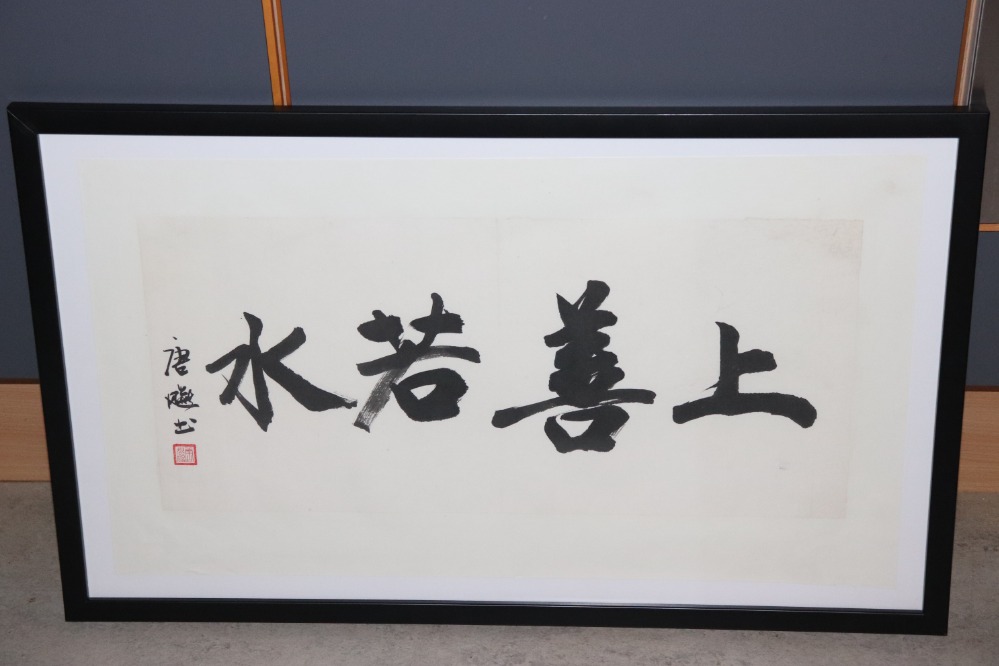 上善若水
唐
书